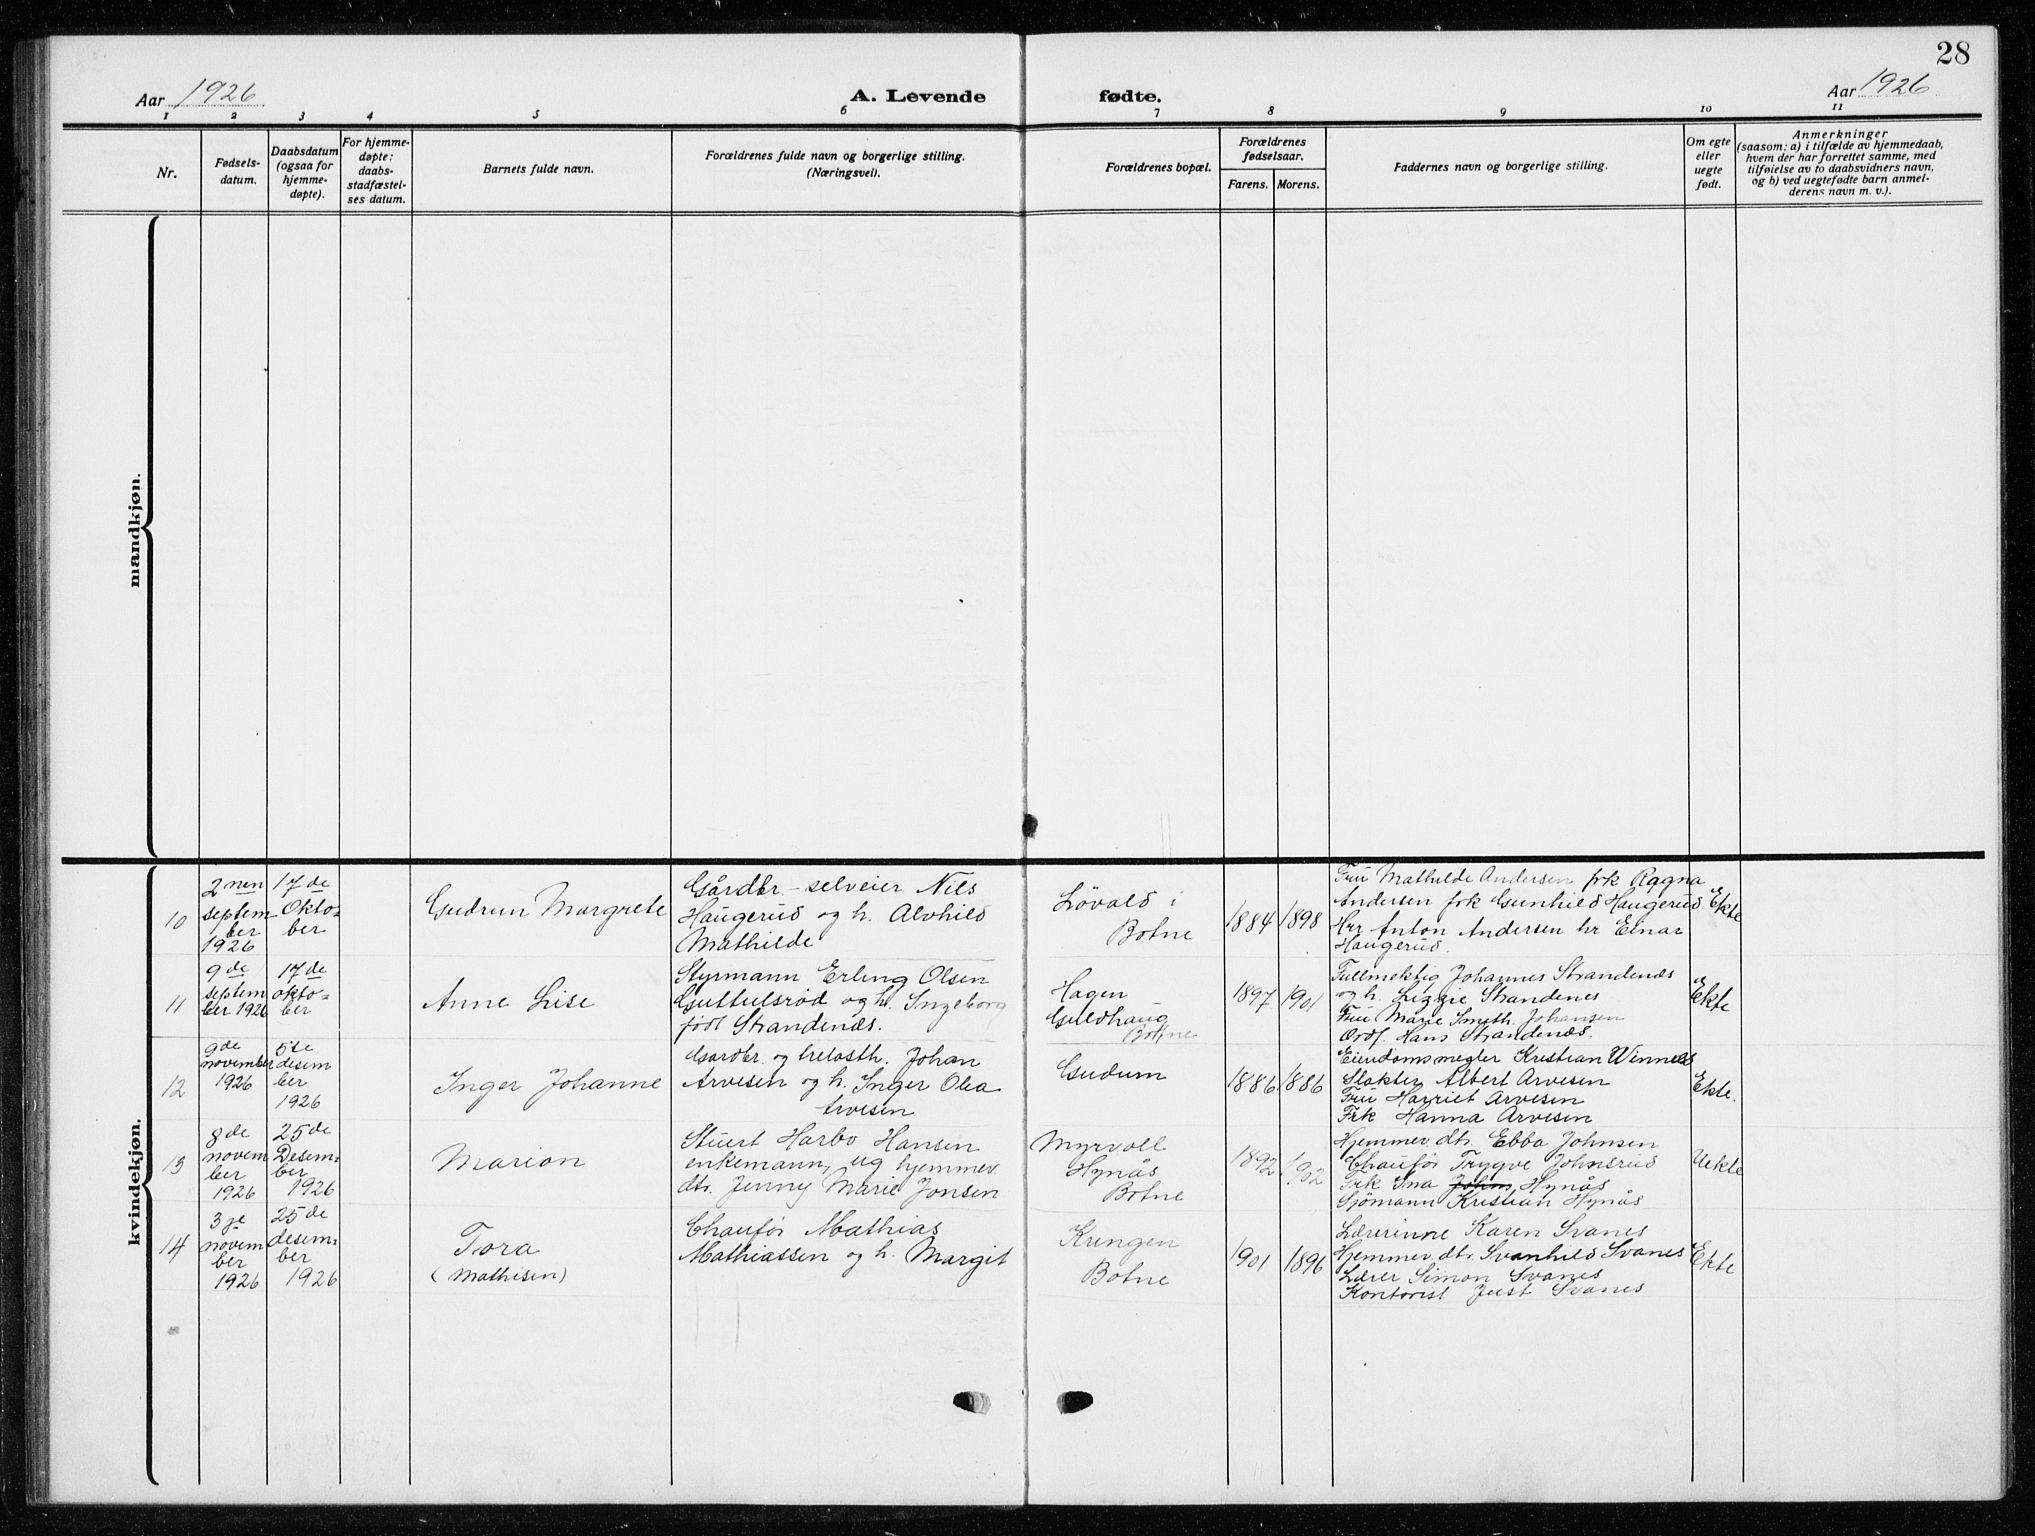 28
Aar 1926
A. Levende
fødte.
Aar 1926
1 2 3 4 5 6 7 8 9 10 11
Nr.
Fødsels-
datum.
Daabsdatum
(ogsaa for
hjemme-
døpte).
For hjemme-
døpte:
daabs-
stadfæstel-
ses datum.
Barnets fulde navn.
Forældrenes fulde navn og borgerlige stilling.
(Næringsvei).
Forældrenes bopæl.
Forældrenes
fødselsaar.
Farens. Morens.
Faddernes navn og borgerlige stilling.
Om egte
eller
uegte
født.
Anmerkninger
(saasom: a) i tilfælde av hjemmedaab,
hvem der har forrettet samme, med
tilføielse av to daabsvidners navn,
og b) ved uegtefødte barn anmel-
derens navn m. v.).
mandkjøn.
kvindekjøn.
10
2nen
septem
ber
1926
17de
Okto-
ber
Gudrun Margrete
Gårdbr - selveier Nils
Haugerud og h. Alvhild
Mathilde
Løvald i
Botne
1884
1898
Fru Mathilde Andersen frk Ragna
Andersen frk Gunhild Haugerud
Hrr Anton Andersen hr Einar
Haugerud.
Ekte
11
9de
septem
ber 1926
17de
okto-
ber
Anne Lise
Styrmann Erling Olsen
Guttulsrød og h. Ingeborg
født Strandenæs.
Hagen
Guldhaug
Botne
1897
1901
Fullmektig Johannes Strandenæs
og h. Lizzie Strandenes
Fru Marie Smeth. Johansen
Ordf. Hans Strandenæs.
Ekte
12
9de
november
1926
5te
desem
ber
1926
Inger Johanne
Gardbr. og trelasth. Johan
Arvesen og h. Inger Olea
Arvesen
Gudum
1886
1886
Eiendomsmegler Kristian Winnes
Slakter Albert Arvesen
Fru Harriet Arvesen
Frk Hanna Arvesen
Ekte.
13
8de
novem
ber
1926
25de
Desem-
ber
1926
Marion
Stuert Harbo Hansen
enkemann, ug hjemmev.
dtr. Jenny Marie Jonsen
Myrvoll
Hynås
Botne
1892
1902
Hjemmev. dtr. Ebba Johnsen
Chaufør Trygve Johnsrud
Frk Ina Hynås
Sjömann Kristian Hynås
Uekte
14
3je
novem
ber
1926
25de
desem-
ber
1926
Tora
(Mathisen)
Chaufør Mathias
Mathiassen og h. Margit
Krengen
Botne
1901
1896
Lærerinne Karen Svanes
Hjemmev. dtr. Svanhild Svanes
Lærer Simon Svanes
Kontorist Just Svanes
Ekte